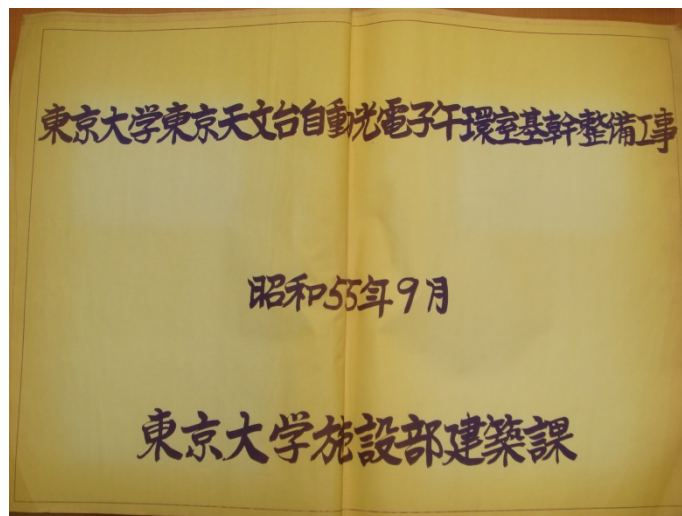 東京大学東京天文台自動光電子午環室基幹整備工事
昭和55年9月
東京大学施設部建築課